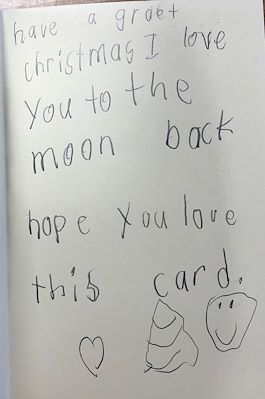 have a groet
christmas I love
you to the
moon back
hope you love
this card.